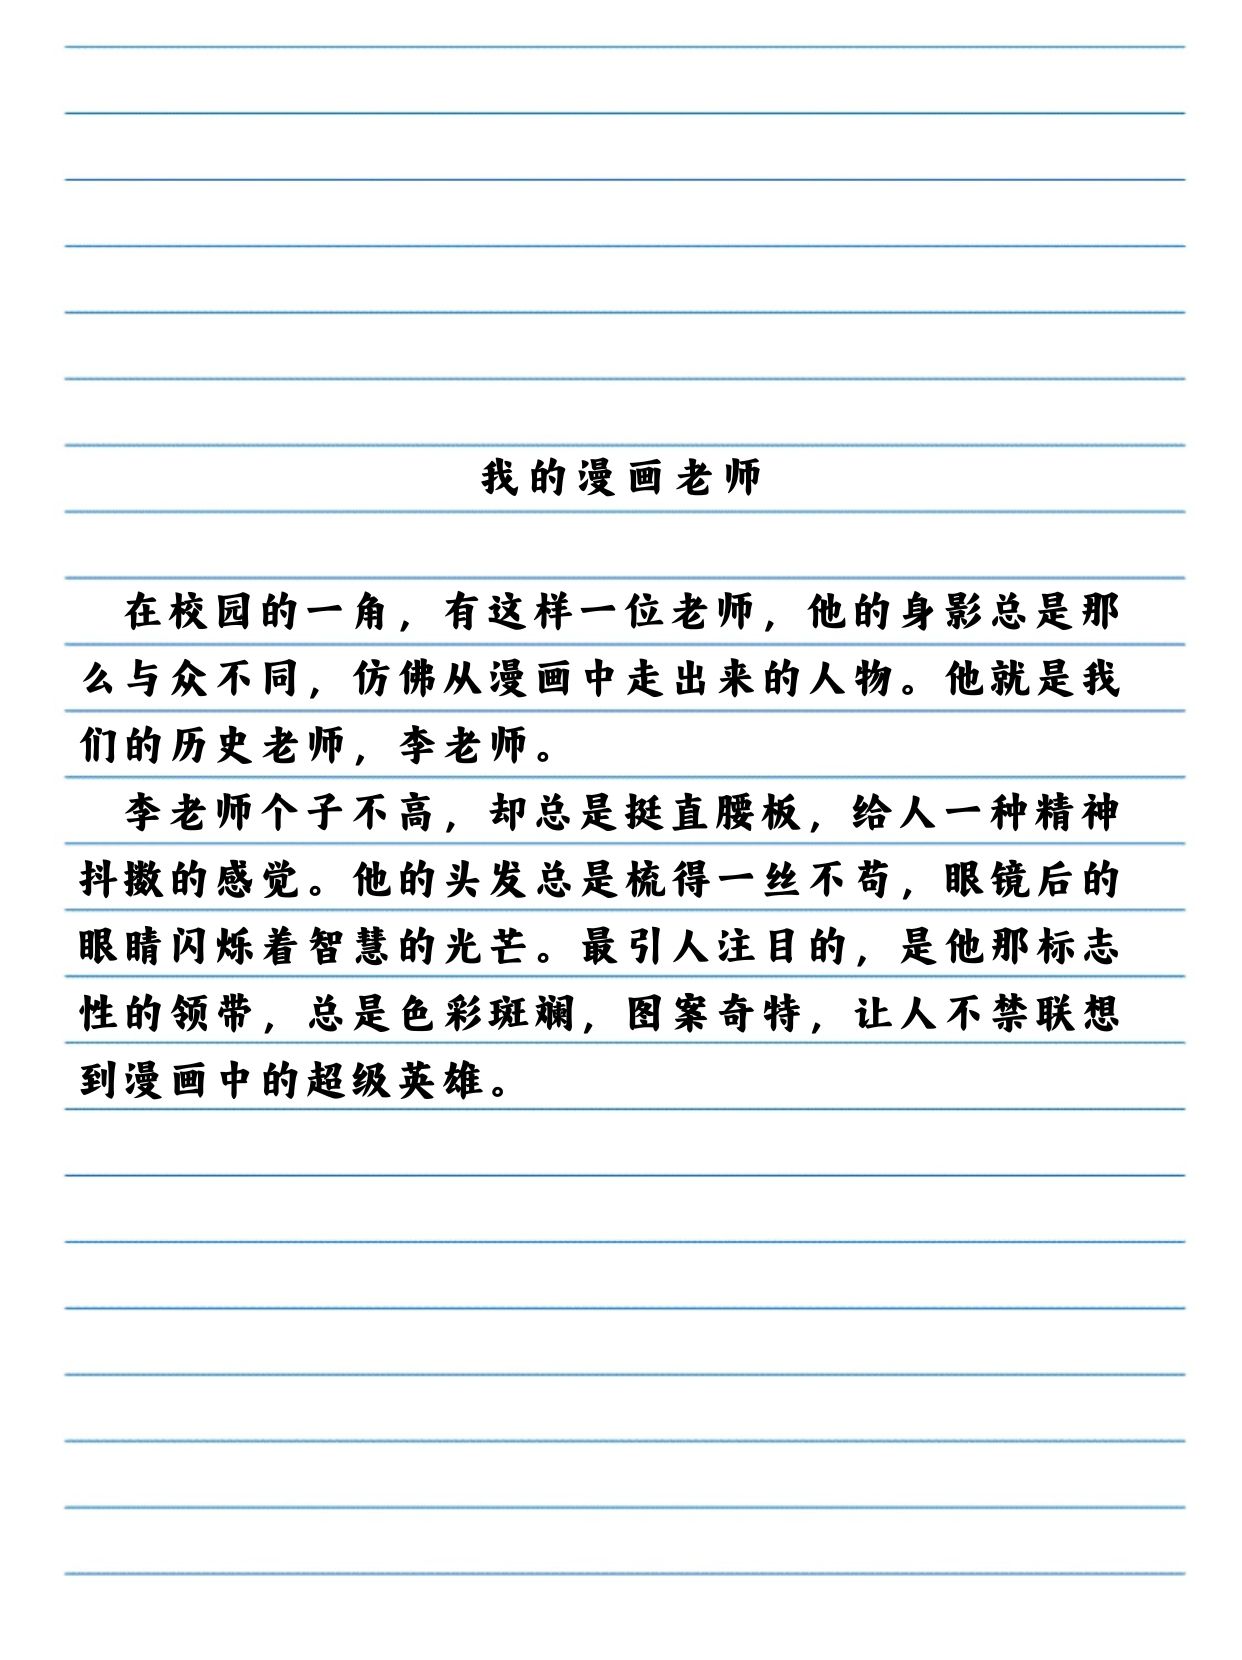 我的漫画老师
在校园的一角，有这样一位老师，他的身影总是那
么与众不同，仿佛从漫画中走出来的人物。他就是我
们的历史老师，李老师。
李老师个子不高，却总是挺直腰板，给人一种精神
抖擞的感觉。他的头发总是梳得一丝不苟，眼镜后的
眼睛闪烁着智慧的光芒。最引人注目的，是他那标志
性的领带，总是色彩斑斓，图案奇特，让人不禁联想
到漫画中的超级英雄。